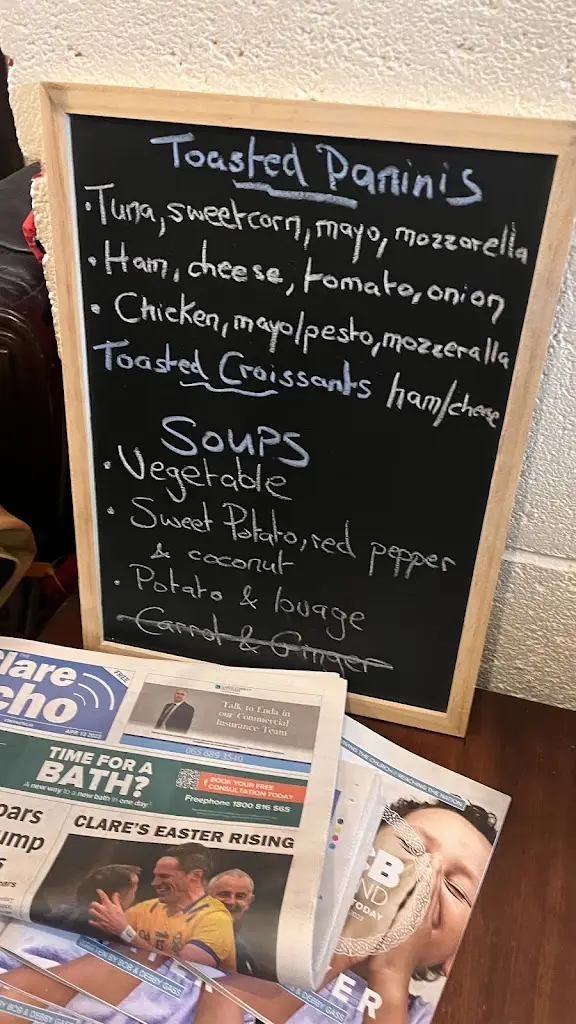 Toasted Paninis
• Tuna, sweetcorn, mayo, mozzarella
• Ham, cheese, tomato, onion
• Chicken, mayo/pesto, mozzeralla
Toasted Croissants ham/cheese
Soups
• Vegetable
• Sweet Potato, red pepper
& coconut
• Potato & lovage
Carrot & Ginger
Clare
Echo
FREE
APR 13 2023
Talk to Enda in
our Commercial
Insurance Team
065 689 3540
TIME FOR A
BATH?
A new way to a new bath in one day!
BOOK YOUR FREE
CONSULTATION TODAY
Freephone 1800 816 565
CLARE'S EASTER RISING
THE CHURCH // REACHING THE NATION
TODAY
BY BOB & DEBBY GASS
BY BOB & DEBBY GASS